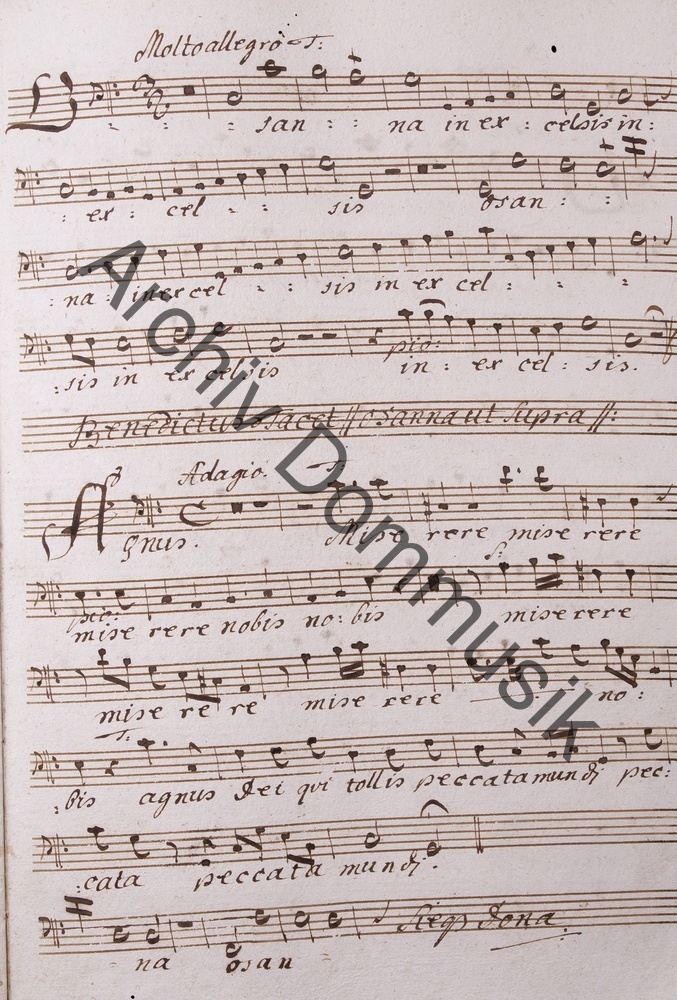 Molto allegro T:
san : : na in ex : celsis in :
: ex : cel : : sis osan : :
: na : in ex cel : : sis in ex cel : : :
pio:
: sis in ex celsis in : ex cel : sis.
Benedictus tacet // osanna ut supra //:
Adagio. T:
Agnus. Mise rere mise rere
pio: S:
mise rere nobis no : bis mise rere
mise re re mise rere no :
T:
: bis agnus Dei qui tollis peccata mundi pec :
: cata peccata mundi.
na osan Sieqp dona
Archiv Dommusik